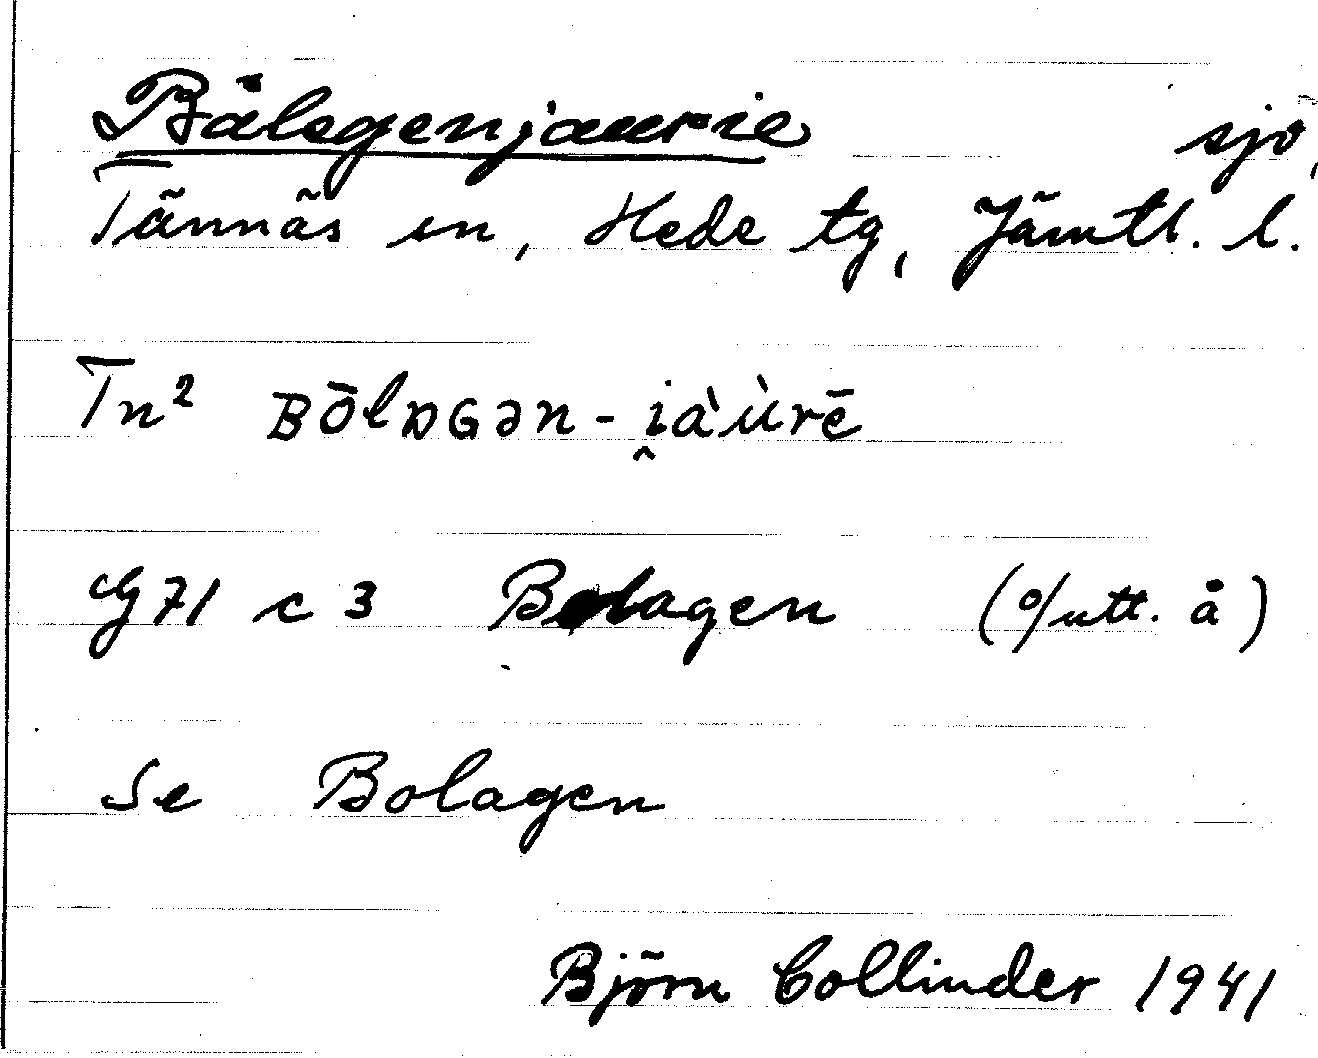 Bålogenjaurie sjö,
Tännäs sn, Hede tg, Jämtl. l.
Tn² Bōlᴅɢən-i̭àùrē
G71 c 3 Bolagen (o/utt. å)
Se Bolagen
Björn Collinder 1941